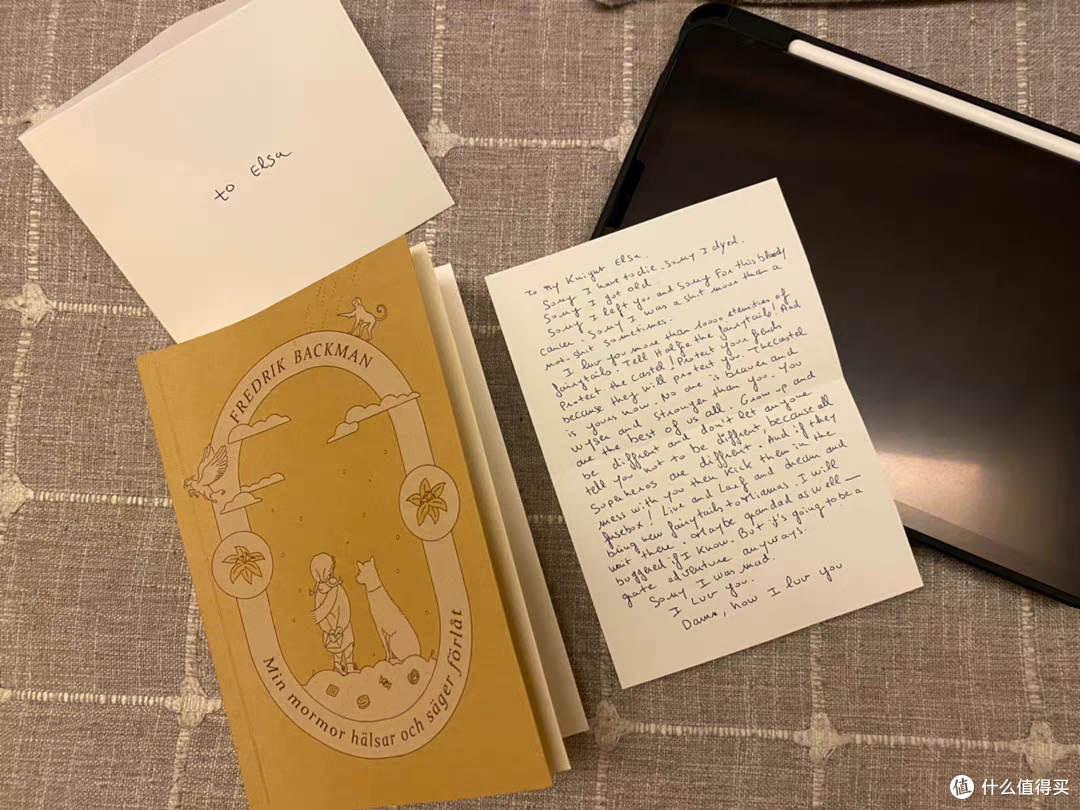 to Elsa
FREDRIK BACKMAN
Min mormor hälsar och säger förlåt
To my Knigut Elsa.
Sorry I have to die. Sorry I dyed.
Sorry I got old.
Sorry I left you and sorry for this bloody
cancer. Sorry I was a shit more than a
not-shit sometimes.
I luv you more than 10000 eternities of
fairytails. Tell Halfie the fairytails! And
Protect the castel! Protect your friends
because they will protect you. The castel
is yours now. No one is braver and
wyser and stronger than you. You
are the best of us all. Grow up and
be diffrent and don't let anyone
tell you not to be diffrent, because all
Superheros are diffrent. And if they
mess with you then kick them in the
fusebox! Live and Larf and dream and
bring new fairytails to Miamas. I will
wait there. Maybe grandad as well —
buggered if I know. But it's going to be a
grate adventure anyways.
Sorry I was mad.
I luv you.
Damn, how I luv you
值 什么值得买